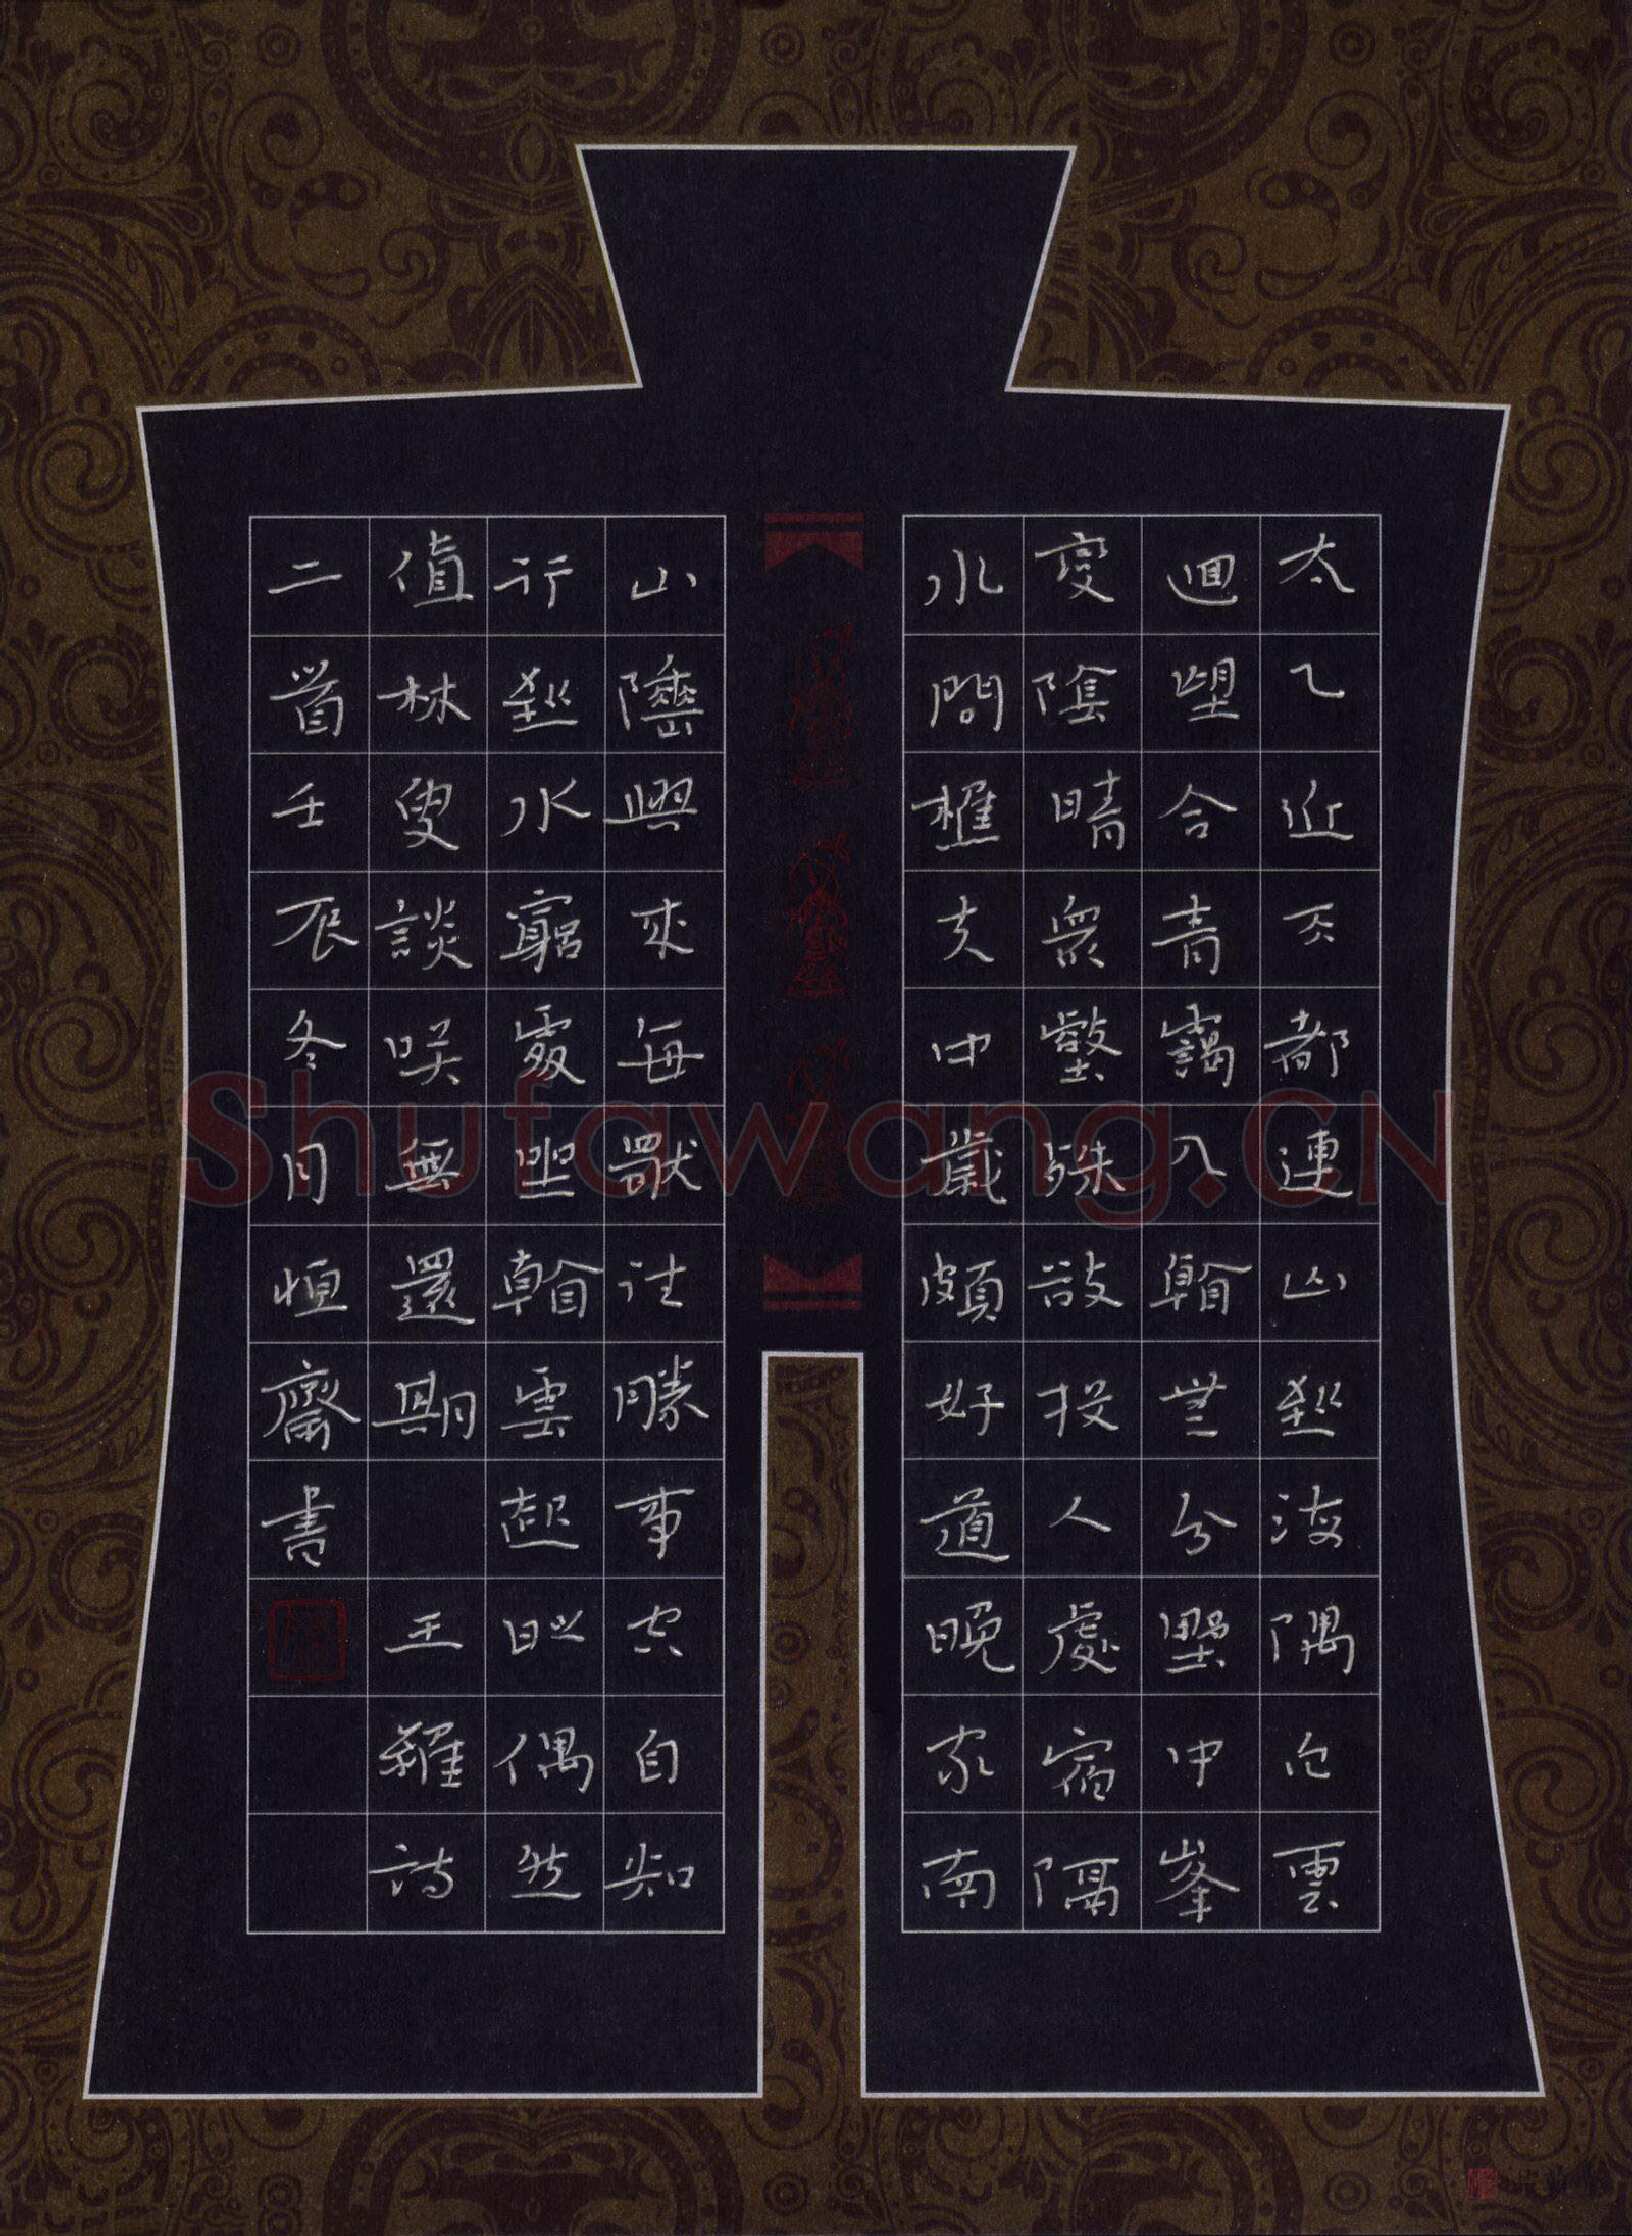 太乙近天都連山到海隅白雲
迴望合青靄入看無分野中峯
變陰晴眾壑殊欲投人處宿隔
水問樵夫中歲頗好道晚家南
山陲興來每獨往勝事空自知
行到水窮處坐看雲起時偶然
值林叟談咲無還期 王維詩
二首壬辰冬月恒齋書
Shufawang.CN